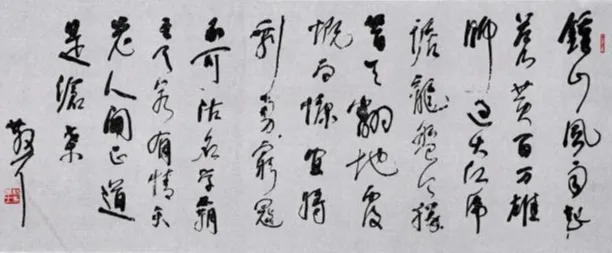 鍾山風雨起
蒼黃百萬雄
師過大江虎
踞龍盤今勝
昔天翻地覆
慨而慷宜將
剩勇窮寇
不可沽名學霸
王天若有情
老人間正道
是滄桑